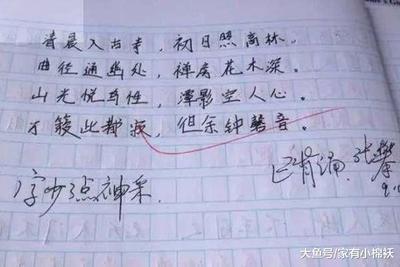 清晨入古寺，初日照高林。
曲径通幽处，禅房花木深。
山光悦鸟性，潭影空人心。
万籁此都寂，但余钟磬音。
已背诵.张
字少点神采.
大鱼号/家有小棉袄